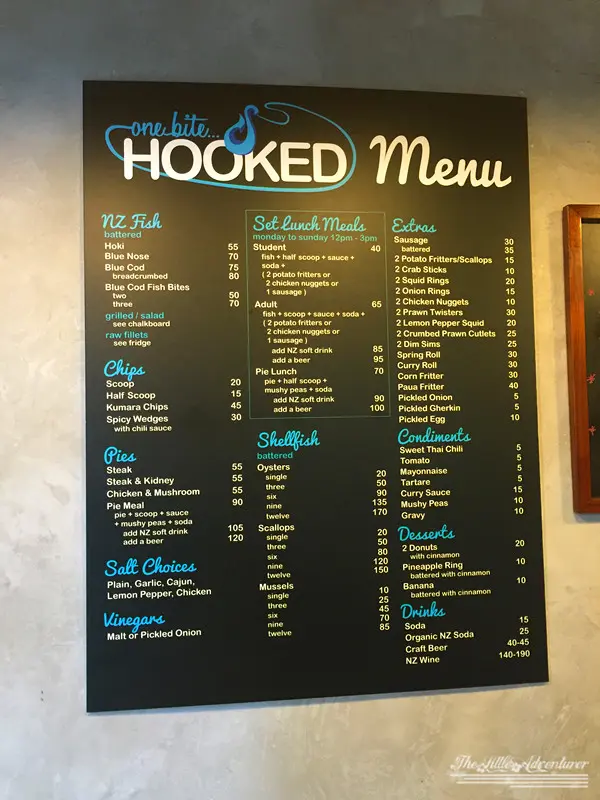 one bite...
HOOKED Menu
NZ Fish
battered
Hoki 55
Blue Nose 70
Blue Cod 75
breadcrumbed 80
Blue Cod Fish Bites
two 50
three 70
grilled / salad
see chalkboard
raw fillets
see fridge
Chips
Scoop 20
Half Scoop 15
Kumara Chips 45
Spicy Wedges 30
with chili sauce
Pies
Steak 55
Steak & Kidney 55
Chicken & Mushroom 55
Pie Meal 90
pie + scoop + sauce
+ mushy peas + soda
add NZ soft drink 105
add a beer 120
Salt Choices
Plain, Garlic, Cajun,
Lemon Pepper, Chicken
Vinegars
Malt or Pickled Onion
Set Lunch Meals
monday to sunday 12pm - 3pm
Student 40
fish + half scoop + sauce +
soda +
( 2 potato fritters or
2 chicken nuggets or
1 sausage )
Adult 65
fish + scoop + sauce + soda +
( 2 potato fritters or
2 chicken nuggets or
1 sausage )
add NZ soft drink 85
add a beer 95
Pie Lunch 70
pie + half scoop +
mushy peas + soda
add NZ soft drink 90
add a beer 100
Shellfish
battered
Oysters
single 20
three 50
six 90
nine 135
twelve 170
Scallops
single 20
three 50
six 80
nine 120
twelve 150
Mussels
single 10
three 25
six 45
nine 70
twelve 85
Extras
Sausage 30
battered 35
2 Potato Fritters/Scallops 15
2 Crab Sticks 10
2 Squid Rings 20
2 Onion Rings 15
2 Chicken Nuggets 10
2 Prawn Twisters 30
2 Lemon Pepper Squid 20
2 Crumbed Prawn Cutlets 25
2 Dim Sims 25
Spring Roll 30
Curry Roll 30
Corn Fritter 30
Paua Fritter 40
Pickled Onion 5
Pickled Gherkin 5
Pickled Egg 10
Condiments
Sweet Thai Chili 5
Tomato 5
Mayonnaise 5
Tartare 5
Curry Sauce 15
Mushy Peas 10
Gravy 10
Desserts
2 Donuts 20
with cinnamon
Pineapple Ring 10
battered with cinnamon
Banana 10
battered with cinnamon
Drinks
Soda 15
Organic NZ Soda 25
Craft Beer 40-45
NZ Wine 140-190
The Little Adventurer